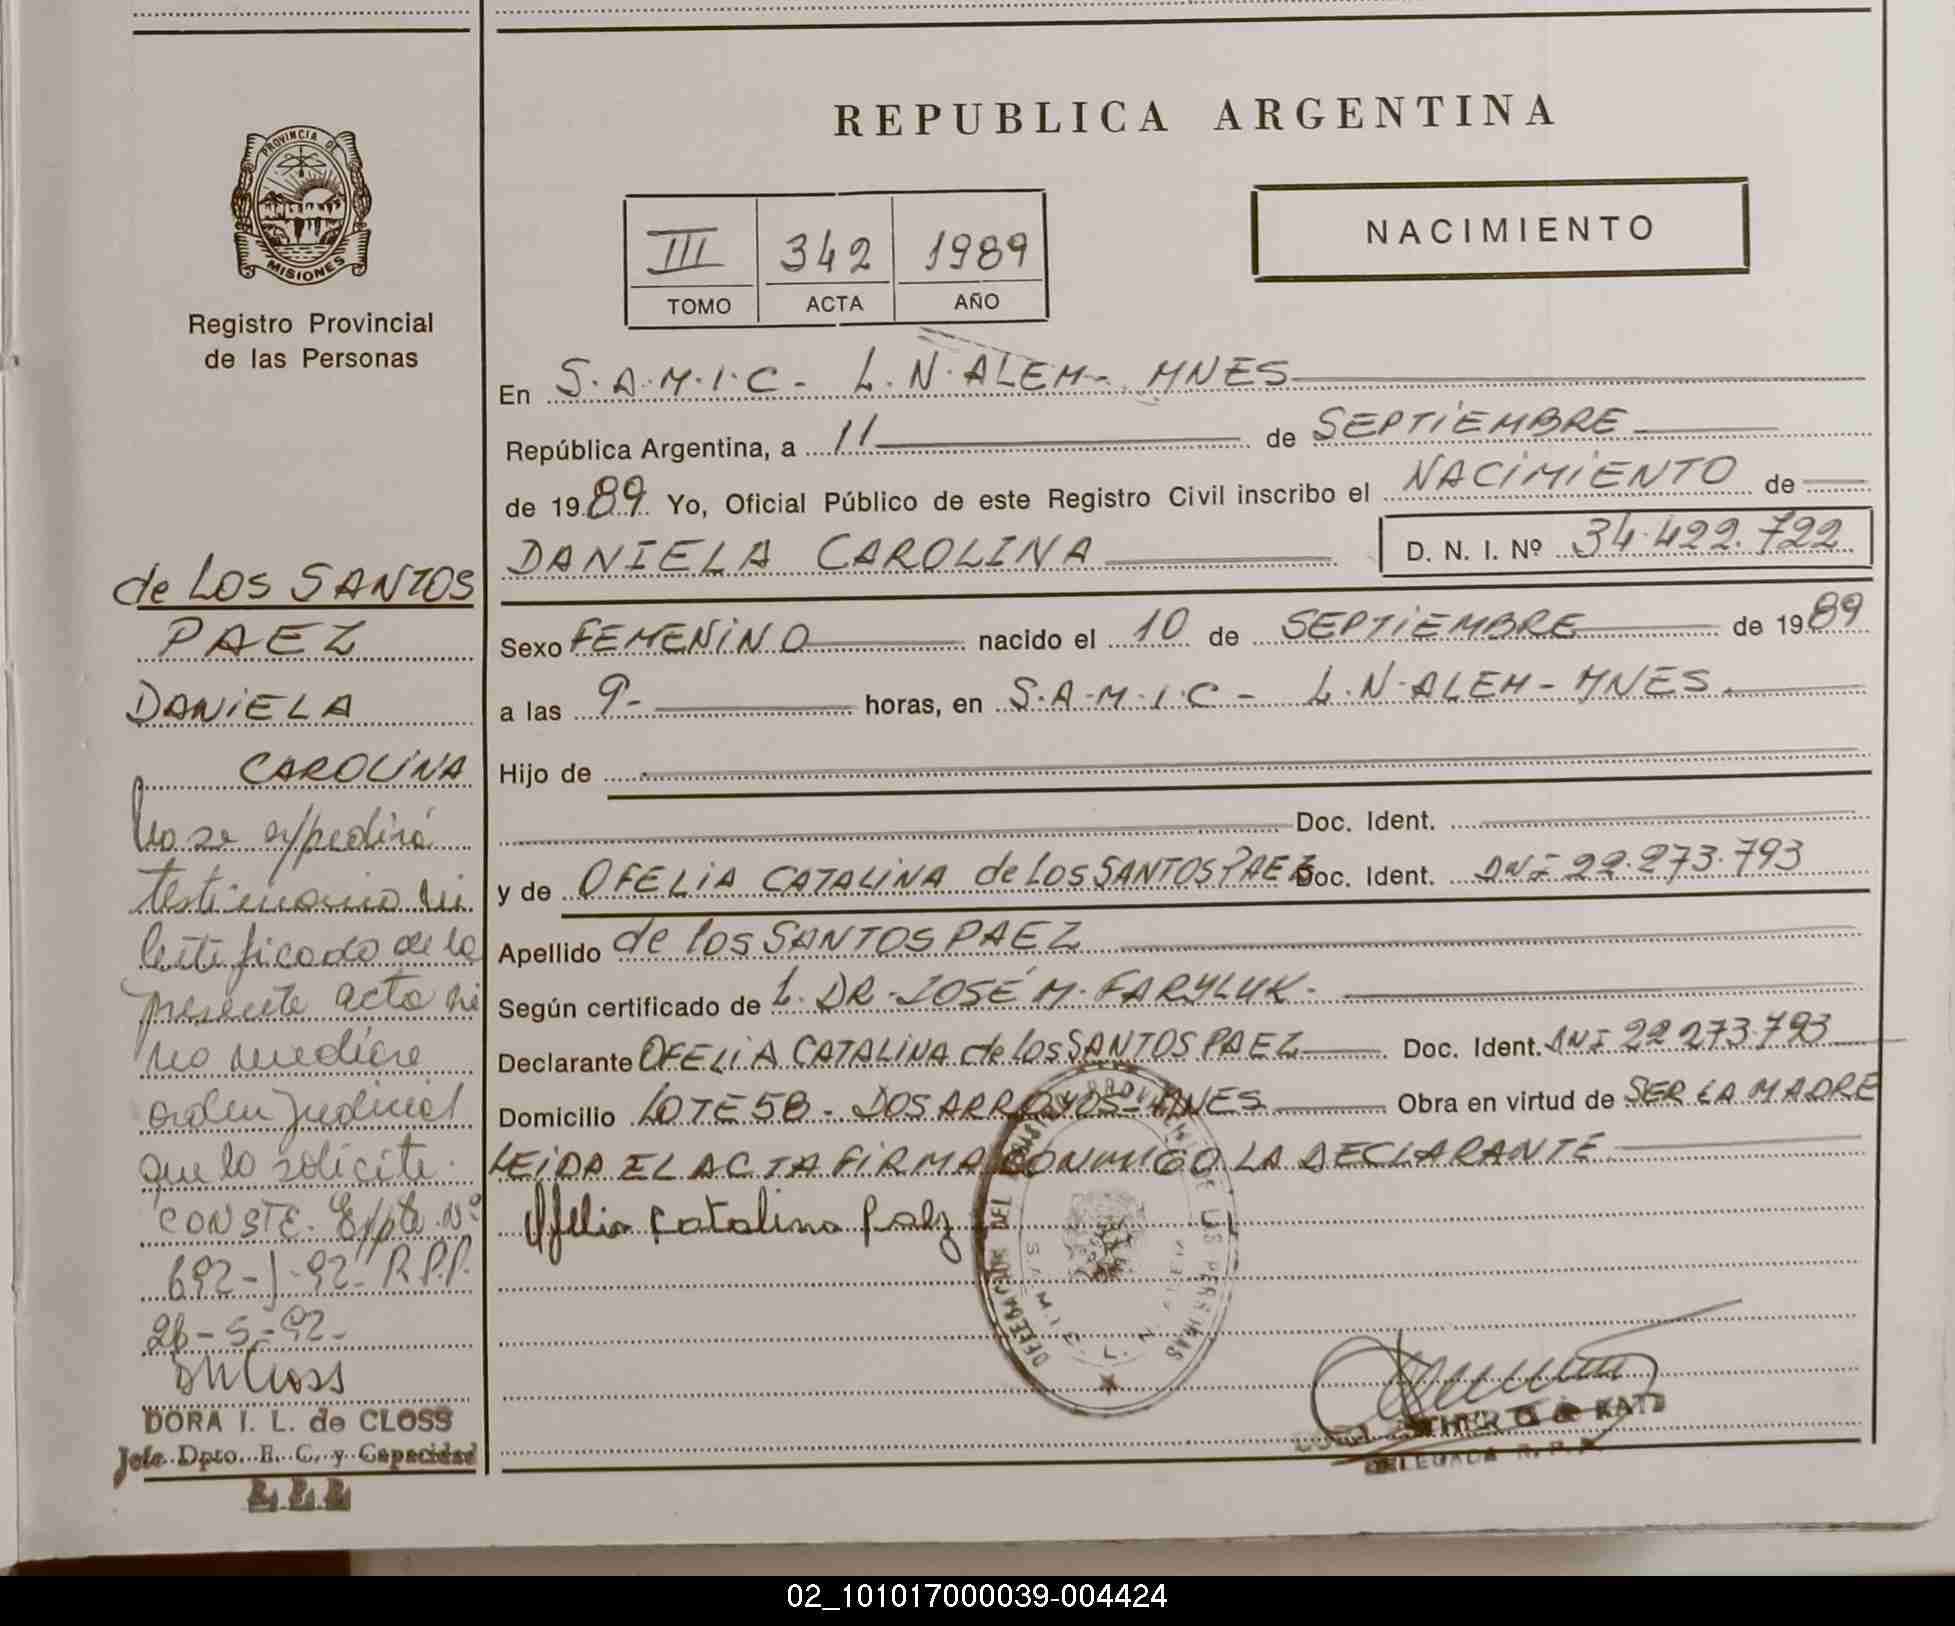 PROVINCIA DE
MISIONES
Registro Provincial
de las Personas
de LOS SANTOS
PAEZ
DANIELA
CAROLINA
No se expedirá
testimonio ni
certificado de la
presente acta si
no mediere
orden judicial
que lo solicite.
CONSTE. Expte. Nº
692-J-92- R.P.P.
26-5-92-
DORA I. L. de CLOSS
Jefe Dpto. E. C. y Capacidad
REPUBLICA ARGENTINA
III 342 1989
TOMO ACTA AÑO
NACIMIENTO
En S.A.M.I.C - L.N.ALEM - MNES
República Argentina, a 11 de SEPTIEMBRE
de 1989 Yo, Oficial Público de este Registro Civil inscribo el NACIMIENTO de
DANIELA CAROLINA D. N. I. Nº 34.422.722
Sexo FEMENINO nacido el 10 de SEPTIEMBRE de 1989
a las 9- horas, en S.A.M.I.C - L.N.ALEM - MNES.
Hijo de
Doc. Ident.
y de OFELIA CATALINA de LOS SANTOS PAEZ Doc. Ident. DNI 22.273.793
Apellido de LOS SANTOS PAEZ
Según certificado de L. DR. JOSÉ M. FARYLUK.
Declarante OFELIA CATALINA de LOS SANTOS PAEZ Doc. Ident. DNI 22 273.793
Domicilio LOTE 58 - DOS ARROYOS - MNES Obra en virtud de SER LA MADRE
LEIDA EL ACTA FIRMA CONMIGO LA DECLARANTE
Ofelia Catalina Paez
DELEGADA R. P. P.
02_101017000039-004424